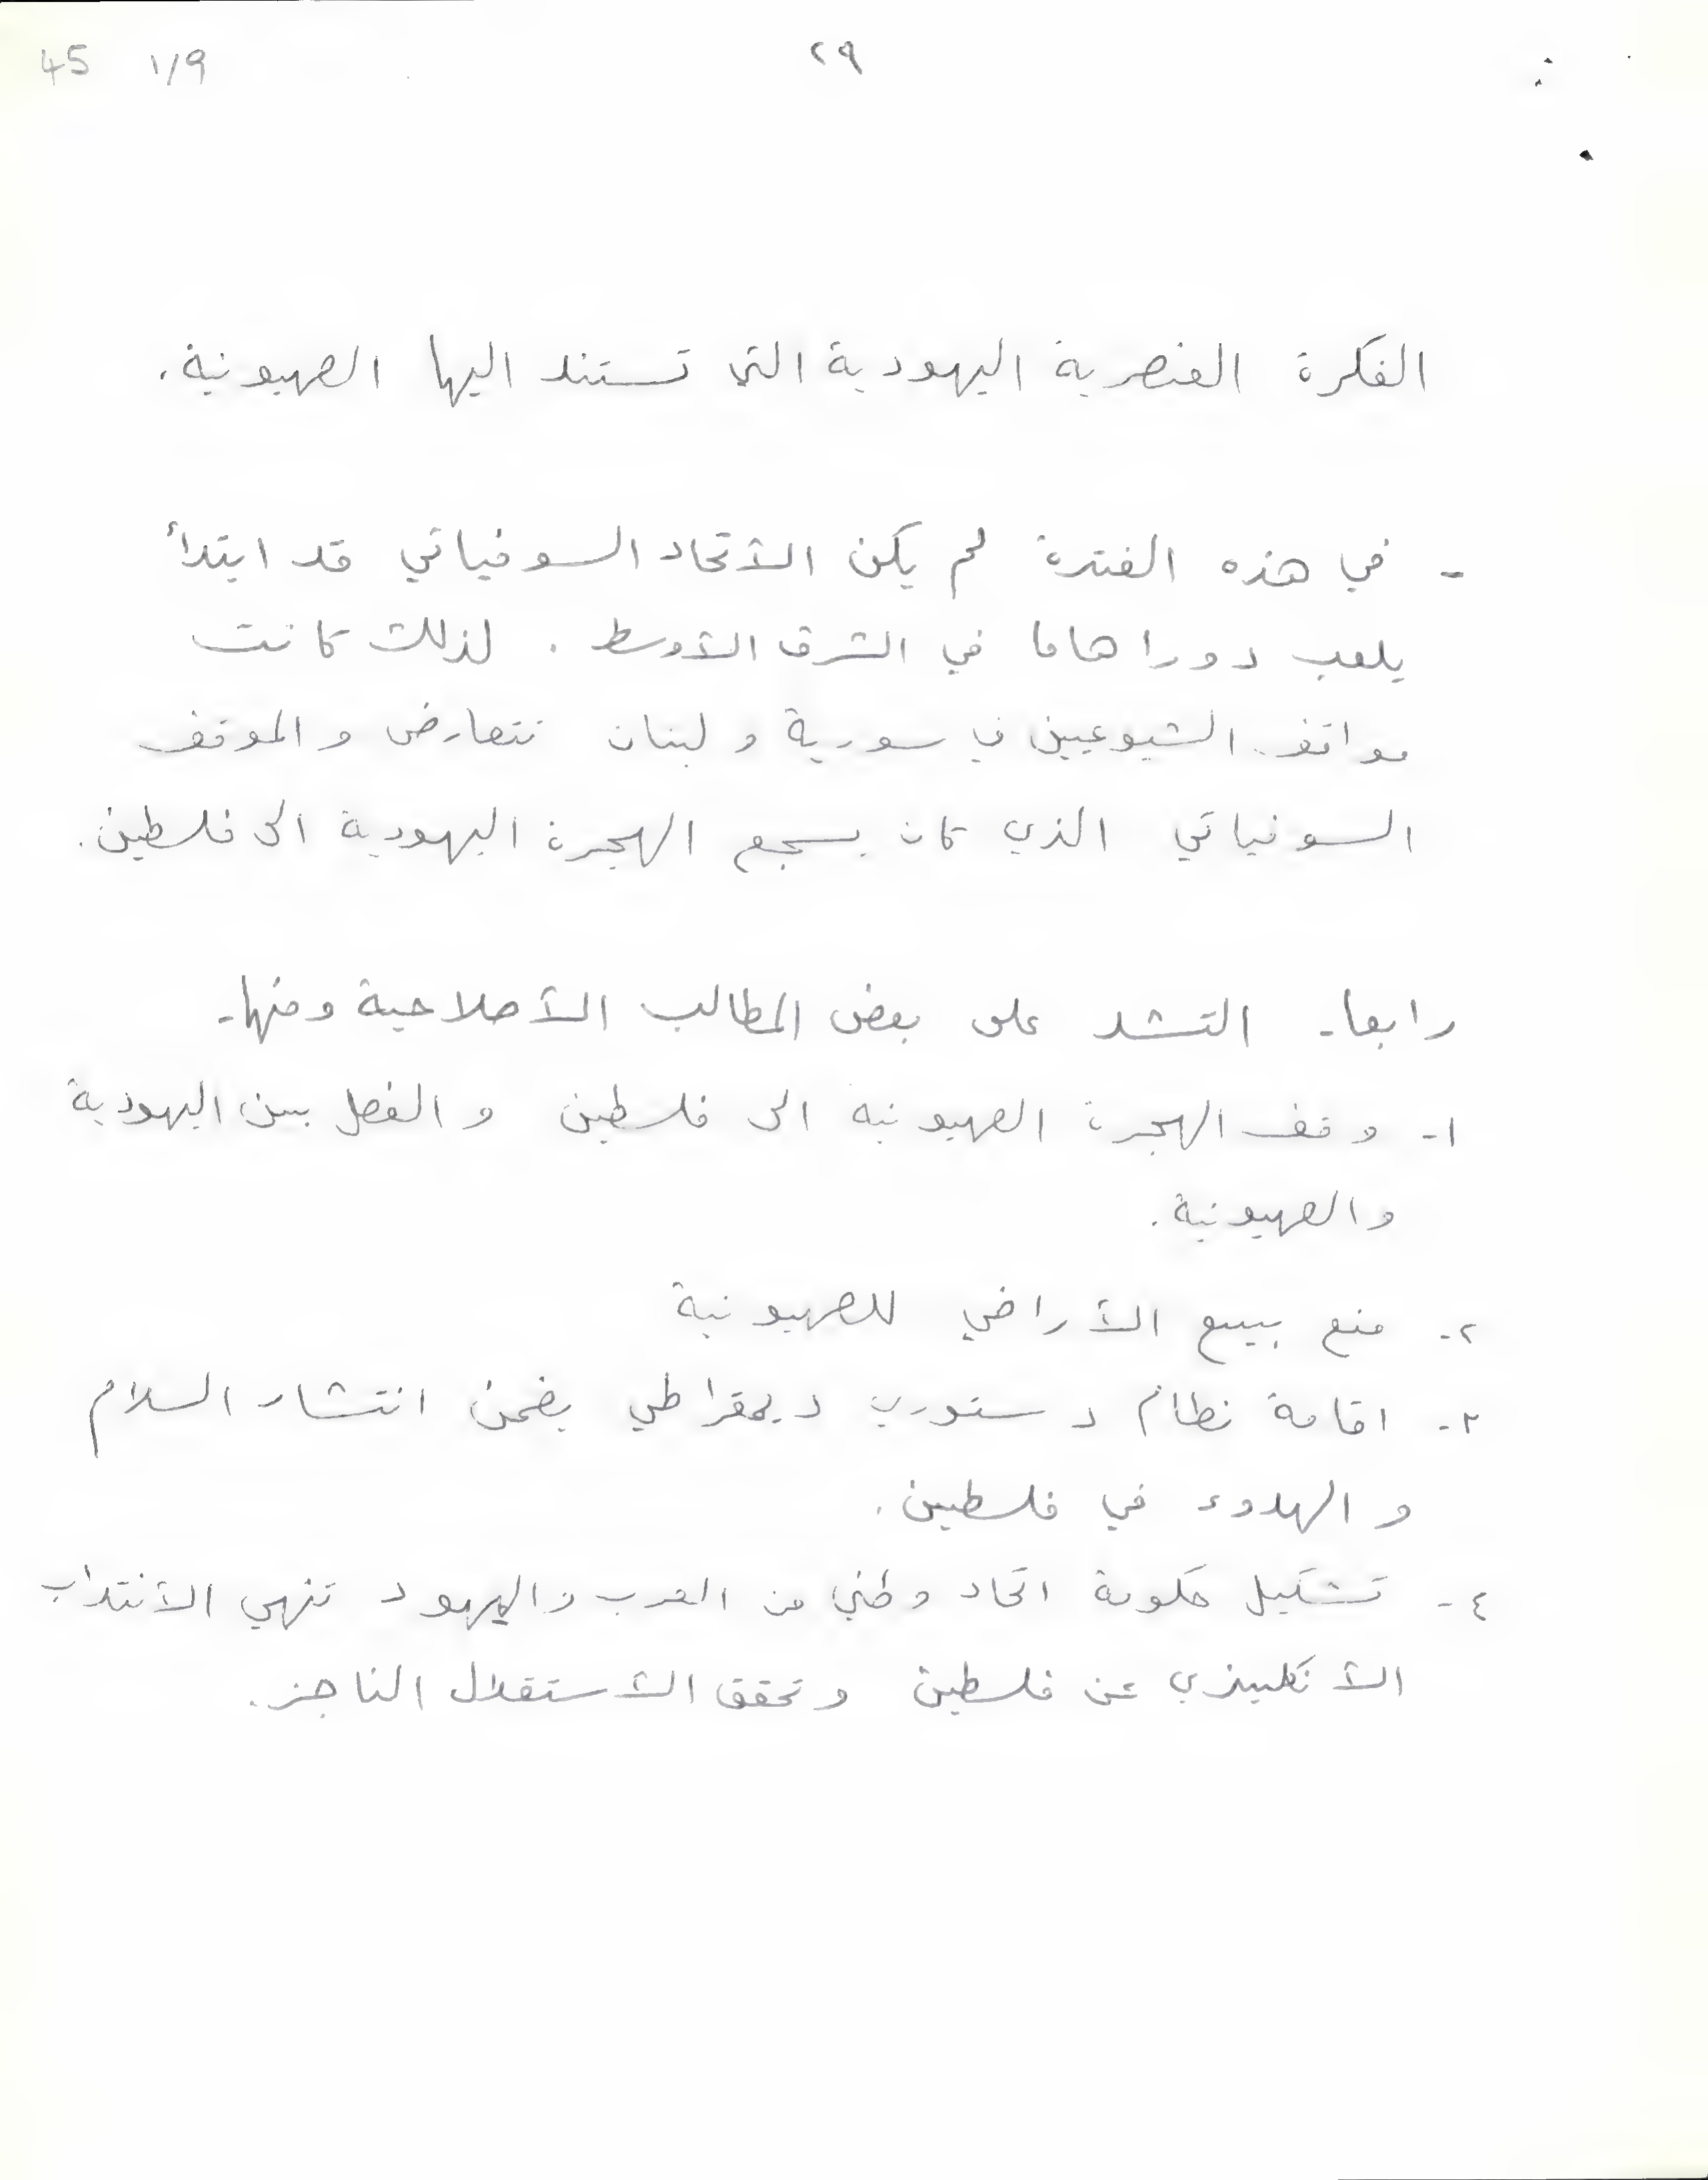 45 ١/٩ ٢٩
الفكرة العنصرية اليهودية التي تستند اليها الصهيونية.
- في هذه الفترة لم يكن الأتحاد السوفياتي قد ابتدأ
يلعب دورا هاما في الشرق الأوسط . لذلك كانت
مواقف الشيوعيين في سورية و لبنان تتعارض و الموقف
السوفياتي الذي كان يشجع الهجرة اليهودية الى فلسطين.
رابعا - التشد على بعض المطالب الأصلاحية ومنها -
١- وقف الهجرة الصهيونية الى فلسطين و الفصل بين اليهودية
والصهيونية.
٢- منع بيع الأراضي للصهيونية
٣- اقامة نظام دستوري ديمقراطي يضمن انتشار السلام
و الهدوء في فلسطين.
٤- تشكيل حكومة اتحاد وطني من العرب واليهود تنهي الأنتداب
الأنكليزي عن فلسطين وتحقق الأستقلال الناجز.